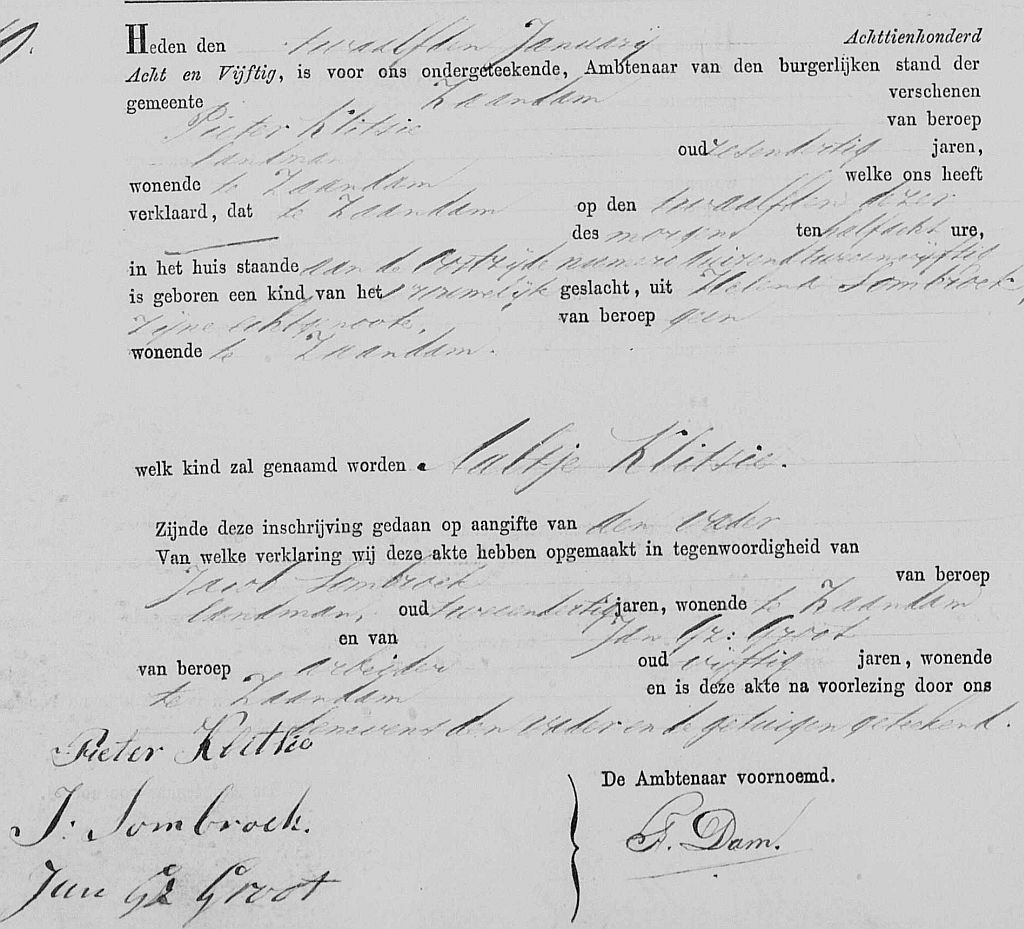 Heden den twaalfden Januarij Achttienhonderd
Acht en Vijftig, is voor ons ondergeteekende, Ambtenaar van den burgerlijken stand der
gemeente Zaandam verschenen
Pieter Klitsie van beroep
landman oud zesendertig jaren,
wonende te Zaandam welke ons heeft
verklaard, dat te Zaandam op den twaalfden dezer
des morgens ten half acht ure,
in het huis staande aan de Oostzijde numero duizend tweeenvijftig
is geboren een kind van het vrouwelijk geslacht, uit Helena Sombroek,
zijne echtgenoote, van beroep geen
wonende te Zaandam.
welk kind zal genaamd worden Aaltje Klitsie.
Zijnde deze inschrijving gedaan op aangifte van den vader
Van welke verklaring wij deze akte hebben opgemaakt in tegenwoordigheid van
Jacob Sombroek van beroep
landman, oud tweeendertig jaren, wonende te Zaandam
en van Jan Gz: Groot
van beroep arbeider oud vijftig jaren, wonende
te Zaandam en is deze akte na voorlezing door ons
benevens den vader en de getuigen geteekend.
Pieter Klitsie
De Ambtenaar voornoemd.
J: Sombroek.
F. Dam.
Jan Gz Groot